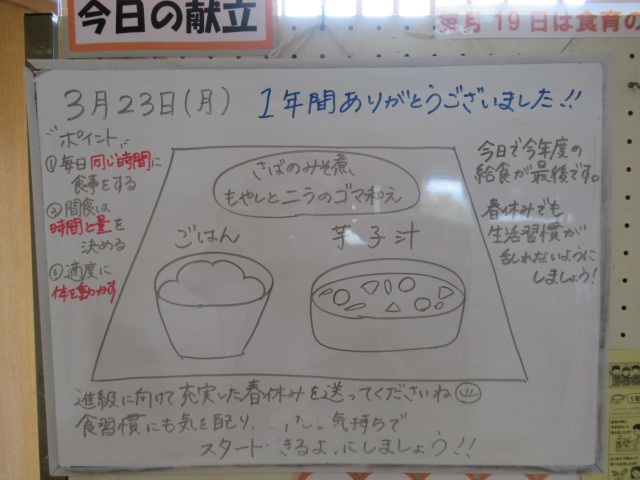 今日の献立
毎月19日は食育の
3月23日(月)
1年間ありがとうございました!!
ポイント
①毎日同じ時間に
食事をする
②間食は
時間と量を
決める
③適度に
体を動かす
さばのみそ煮、
もやしとニラのゴマ和え
ごはん
芋子汁
今日で今年度の
給食が最後です。
春休みでも
生活習慣が
乱れないように
しましょう!
進級に向けて充実した春休みを送ってくださいね
食習慣にも気を配り、 気持ちで
スタート きるよ にしましょう!!